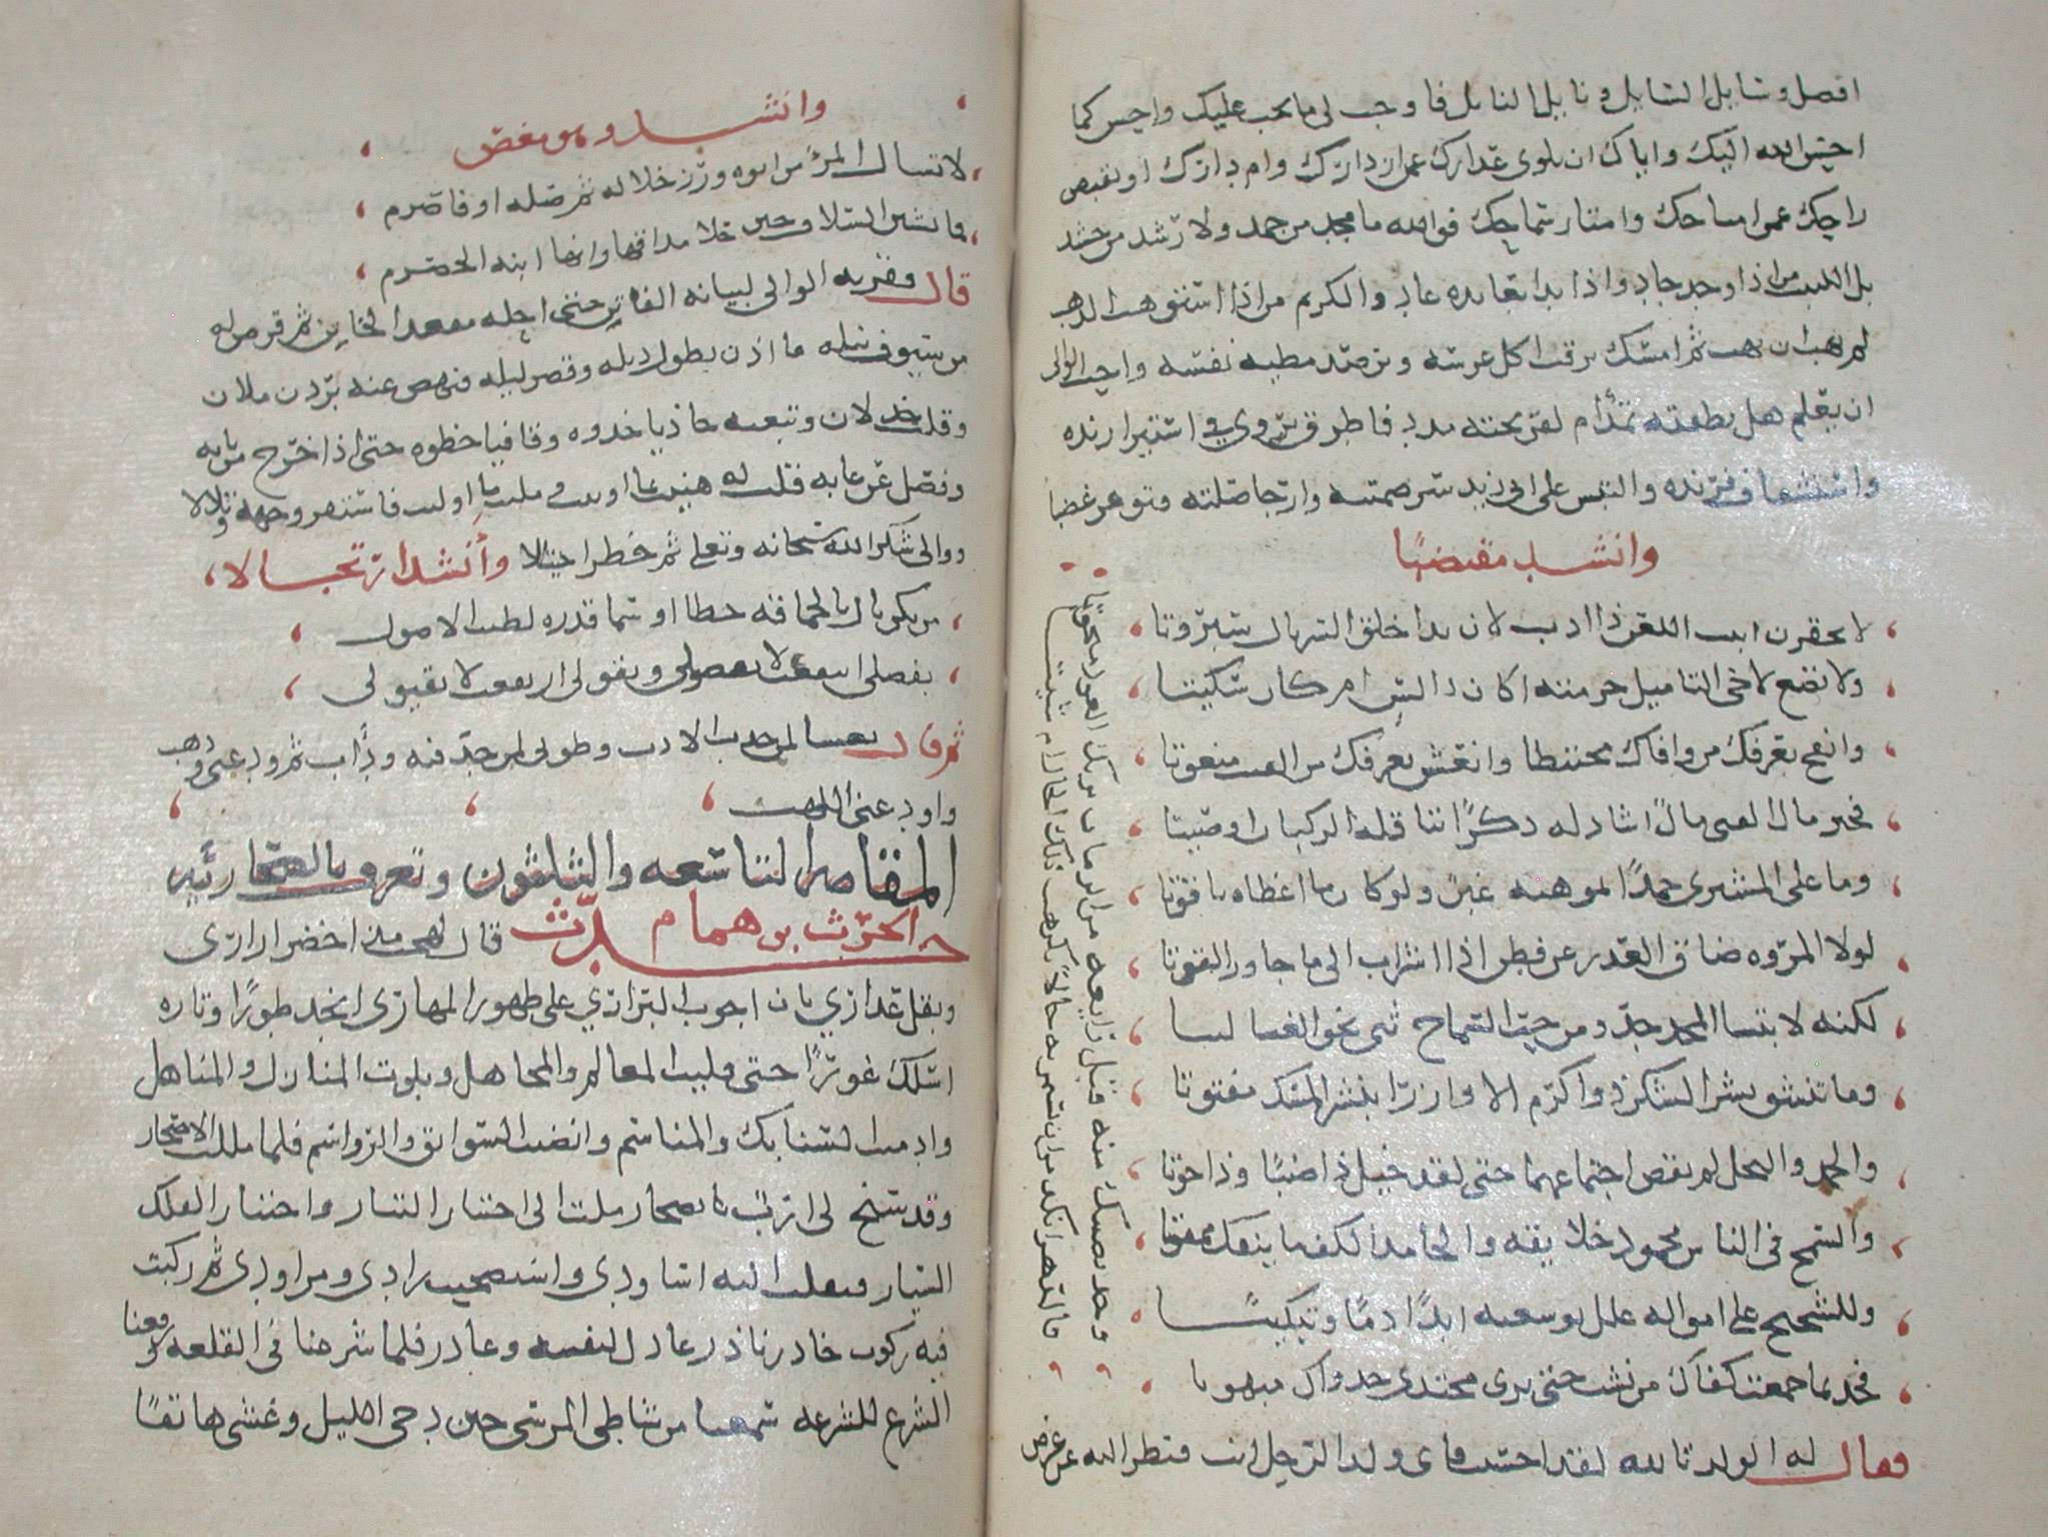 افضل وسايل السايل ونايل النايل فاوجب لى ما يجب عليك واحسن كما
احسن الله اليك واياك ان تلوى عذارك عمن ازدارك وام دارك او تقبض
راحك عمن امتاحك وامتار سماحك فوالله ما مجد من جمد ولا رشد من حشد
بل اللبيب من اذا وجد جاد واذا بدا بعايده عاد والكريم من اذا استوهب الذهب
لم يهب ان يهب ثم امسك يرقب اكل غرسه ويرصد مطيبه نفسه واحب الوالى
ان يعلم هل نطفته ثمد ام لقريحته مدد فاطرق يروي في استيرا زنده
واستشفاف فرنده والتبس على ابى زيد سر صمته وارجا صلته فتوغر غضبا
وانشد مقتضبًا
لا تحقرن ابيت اللعن ذا ادب لان بدا خلق السربال سبروتا
ولا تضع لاخى التاميل حرمته اكان ذا لسن ام كان سكيتا
وانفح بعرفك من وافاك مختبطا وانعش بغوثك من الفيت منعوتا
فخير مال الفتى مال اشاد له ذكرًا تناقله الركبان او صيتا
وما على المشترى حمدًا بموهبه غبن ولو كان ما اعطاه ياقوتا
لولا المروه ضاق العذر عن فطن اذا اشراب الى ما جاوز القوتا
لكنه لابتنا المجد جد ومن حب السماح ثنى نحو الغنا ليتا
وما تنشق نشر الشكر ذو اكرم الا وازرا بنشر المسك مفتوتا
والحمد والبخل لم يقض اجتماعهما حتى لقد خيل ذا ضبًا وذا حوتا
والسمح فى الناس محمود خلايقه والجامد الكف ما ينفك ممقوتا
وللشحيح على امواله علل يوسعنه ابدًا ذمًا وتبكيتًا
فجد بما جمعت كفاك من نشب حتى يرى مجتدى جدواك مبهوتا
وخذ نصيبك منه قبل رايعه من الزمان تريك العود منحوتًا
فالدهر انكد من ان تستمر به حالًا تكرهت تلك الحال ام شيتا
فقال له الوالى تالله لقد احسنت فاى ولد الرجل انت فنظر اليه عن عرض
وانشد وهو مغض
لا تسال المرء من ابوه ورز خلاله ثم صله او فاصرم
فما يشين السلاف حين حلا مذاقها وانها ابنه الحصرم
قال فقربه الوالى لبيانه الفاتن حتى احله مقعد الخاتن ثم فرض له
من سيوف نيله ما اذن بطول ذيله وقصر ليله فنهض عنه بردن ملان
وقلب جذلان وتبعته حاذيا حذوه وقافيا خطوه حتى اذا خرج من بابه
وفصل عن غابه قلت له هنيت بما اوتيت ومليت ما اوليت فاسفر وجهه وتلالا
ووالى شكر الله سبحانه وتعلى ثم خطر اختيالا وأنشد ارتجالا
من يكن نال بالحماقه حظا او سما قدره لطيب الاصول
بفضلى انتفعت لا بفضولى وبقولى ارتفعت لا بقيولى
ثم قال تعسا لمن جدب الادب وطوبى لمن جد فيه وداب ثم ودعنى وذهب
واودعنى اللهب
المقامه التاسعه والثلثون وتعرف بالصحاريه
حدث الحرث بن همام قال لهجت منذ اخضر ازارى
وبقل عذاري بان اجوب البراري على ظهور المهارى انجد طورًا وتاره
اسلك غورًا حتى فليت المعالم والمجاهل وبلوت المنازل والمناهل
وادميت السنابك والمناسم وانضيت السوابق والرواسم فلما مللت الاصحار
وقد سنح لى ارب بصحار ملت الى اختيار التيار واختيار الفلك
السيار فنقلت اليه اساودى واستصحبت زادى ومزاودى ثم ركبت
فيه ركوب حاذر ناذر عاذل لنفسه وعاذر فلما شرعنا فى القلعه ورفعنا
الشرع للسرعه سمعنا من شاطى المرسى حين دجى الليل وغشى هاتفًا